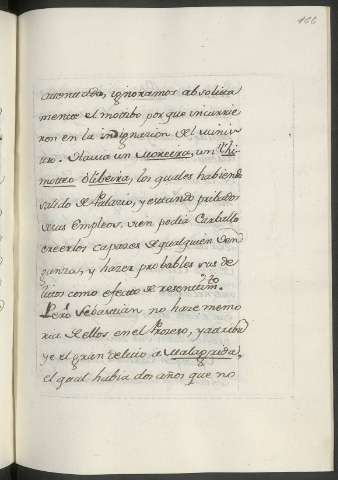 166
ignoramos absoluta
mente el motibo por que incurrie
ron en la indignacion del minis
tro. Havia un Moreira, un Thi
motteo Olibeira, los quales habiendo
salido de Palacio, y estando pribados
de sus Empleos, vien podia Carballo
creerlos capazes de qualquier Ven
ganza, y hazer probables sus de
litos como efecto de resentim.to
Pero Sebastian no haze memo
ria de ellos en el Proceso, y atribu
ye el gran delito a Malagrida,
el qual habia dos años que no